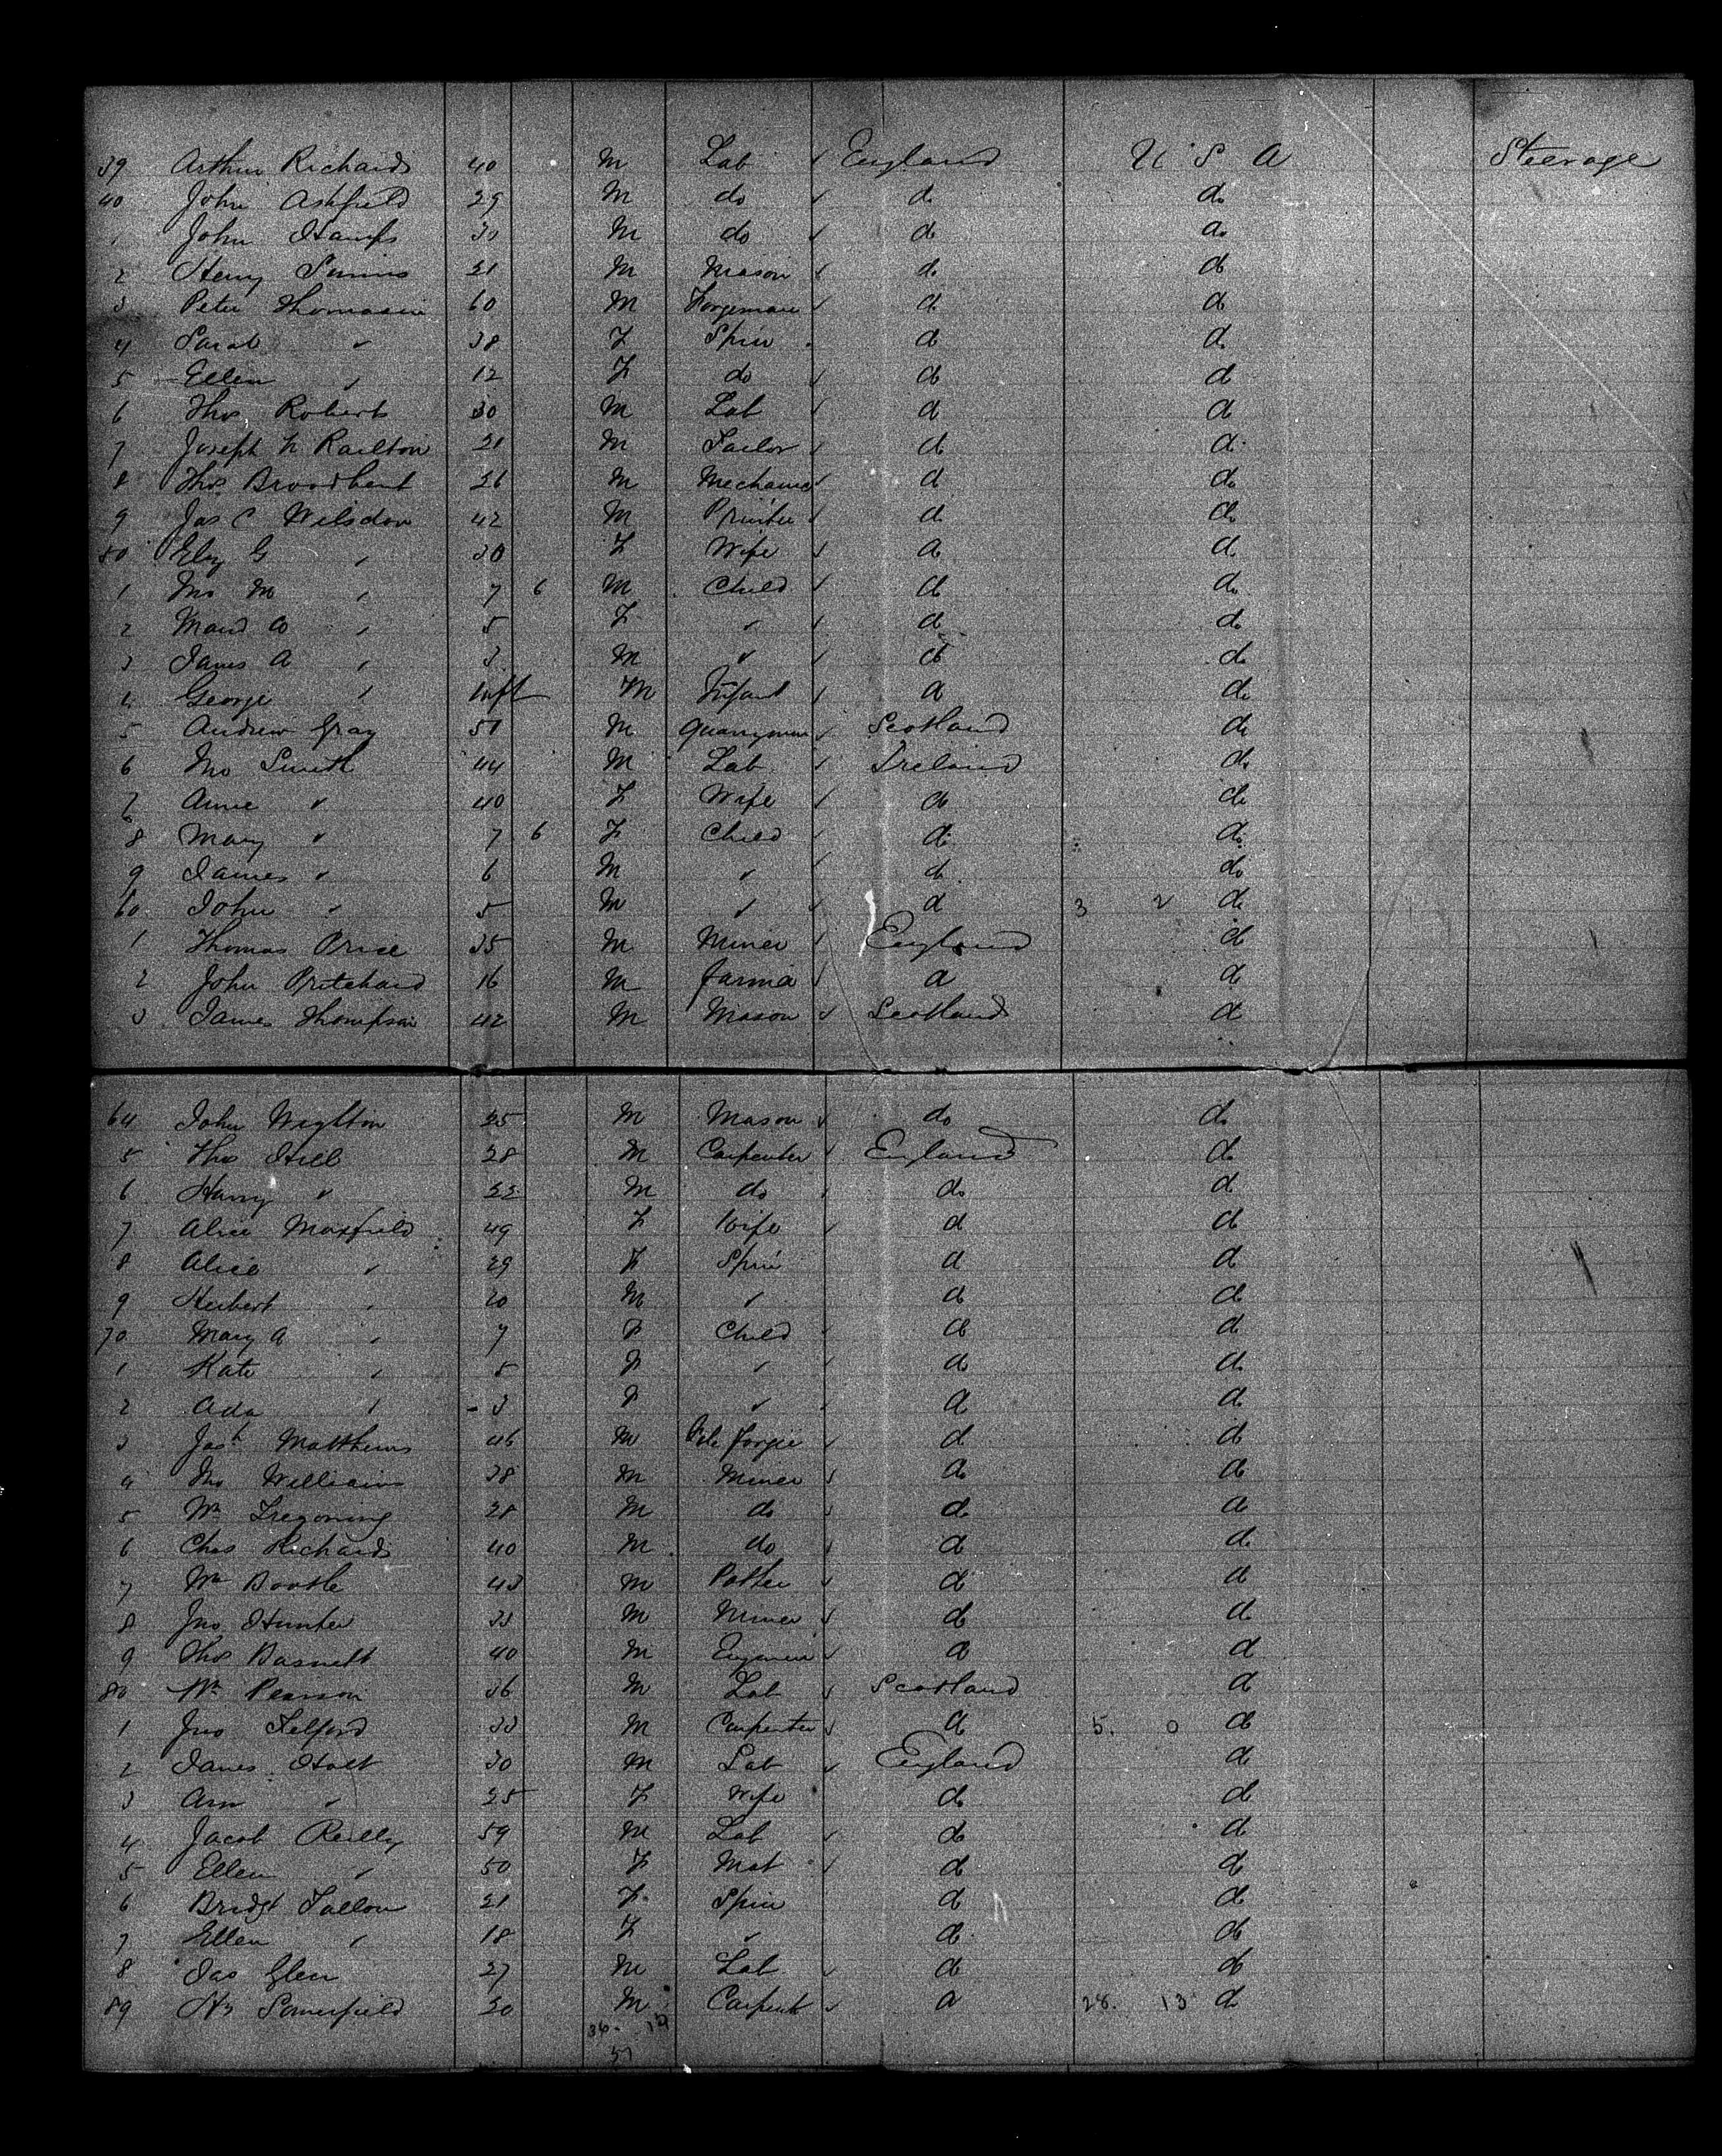 39 Arthur Richards 40 M Lab ✓ England U S A Steerage
40 John Ashfield 29 M do ✓ do do
1 John Stamps 30 M do ✓ do do
2 Henry 21 M Mason ✓ do do
3 Peter Thomasin 60 M Forgeman ✓ do do
4 Sarah " 38 F Spin do do
5 Ellen " 12 F do ✓ do do
6 Thos Roberts 30 M Lab ✓ do do
7 Joseph h Railton 21 M Tailor ✓ do do
8 Thos Broadbent 26 M Mechanic ✓ do do
9 Jas C Wilsdon 42 M Printer ✓ do do
50 Eliz G " 30 F Wife ✓ do do
1 Jno M " 7 6 M Child ✓ do do
2 Maud " 5 F " ✓ do do
3 James A " 3 M " ✓ do do
4 George " Inft M Infant ✓ do do
5 Andrew Gray 51 M Quarryman ✓ Scotland do
6 Jno Smith 44 M Lab ✓ Ireland do
7 Anne " 40 F Wife ✓ do do
8 Mary " 7 6 F Child ✓ do do
9 James " 6 M " ✓ do do
60 John " 5 M " ✓ do 3 2 do
1 Thomas Price 35 M Miner ✓ England do
2 John Pritchard 16 M farmer ✓ do do
3 James Thompson 42 M Mason ✓ Scotland do
64 John Wighton 25 M Mason ✓ do do
5 Thos Hill 28 M Carpenter ✓ England do
6 Harry " 22 M do ✓ do do
7 Alice Maxfield 49 F Wife ✓ do do
8 Alice " 29 F Spin do do
9 Herbert " 20 M " do do
70 Mary A " 7 F Child ✓ do do
1 Kate " 5 F " ✓ do do
2 Ada " 3 F " ✓ do do
3 Jash Matthews 46 M ✓ do do
4 Jno Williams 38 M Miner ✓ do do
5 Wm Tregoning 28 M do ✓ do do
6 Chas Richards 40 M do ✓ do do
7 Wm Boothe 43 M Potter ✓ do do
8 Jno Hunter 33 M Miner ✓ do do
9 Thos Basnett 40 M ✓ do do
80 Wm Pearson 36 M Lab ✓ Scotland do
1 Jno Telford 33 M Carpenter ✓ do 5. 0 do
2 James Holt 30 M Lab ✓ England do
3 Ann " 25 F Wife do do
4 Jacob Reilly 59 M Lab ✓ do do
5 Ellen " 50 F Mat ✓ do do
6 Bridgt Fallon 21 F Spin do do
7 Ellen " 18 F " do do
8 Jas Glen 27 M Lab ✓ do do
89 Hy Somerfield 20 M Carpent ✓ do 28. 13 do
36 - 15
51